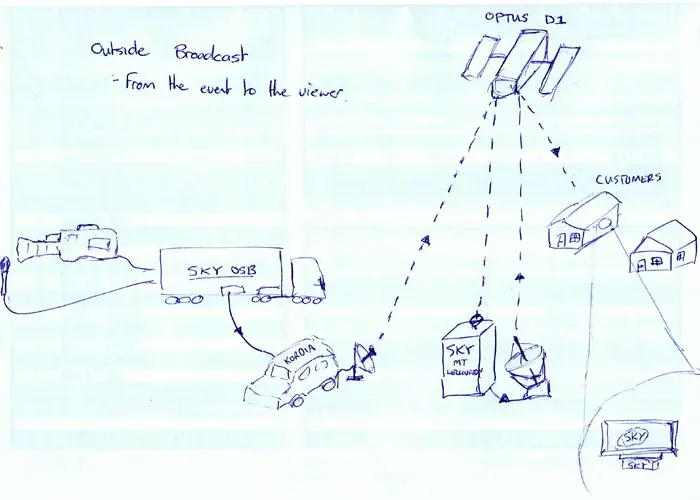 OPTUS D1
Outside Broadcast
- From the event to the viewer.
CUSTOMERS
SKY OSB
KORDIA
SKY
MT
WELLINGTON
SKY
SKY